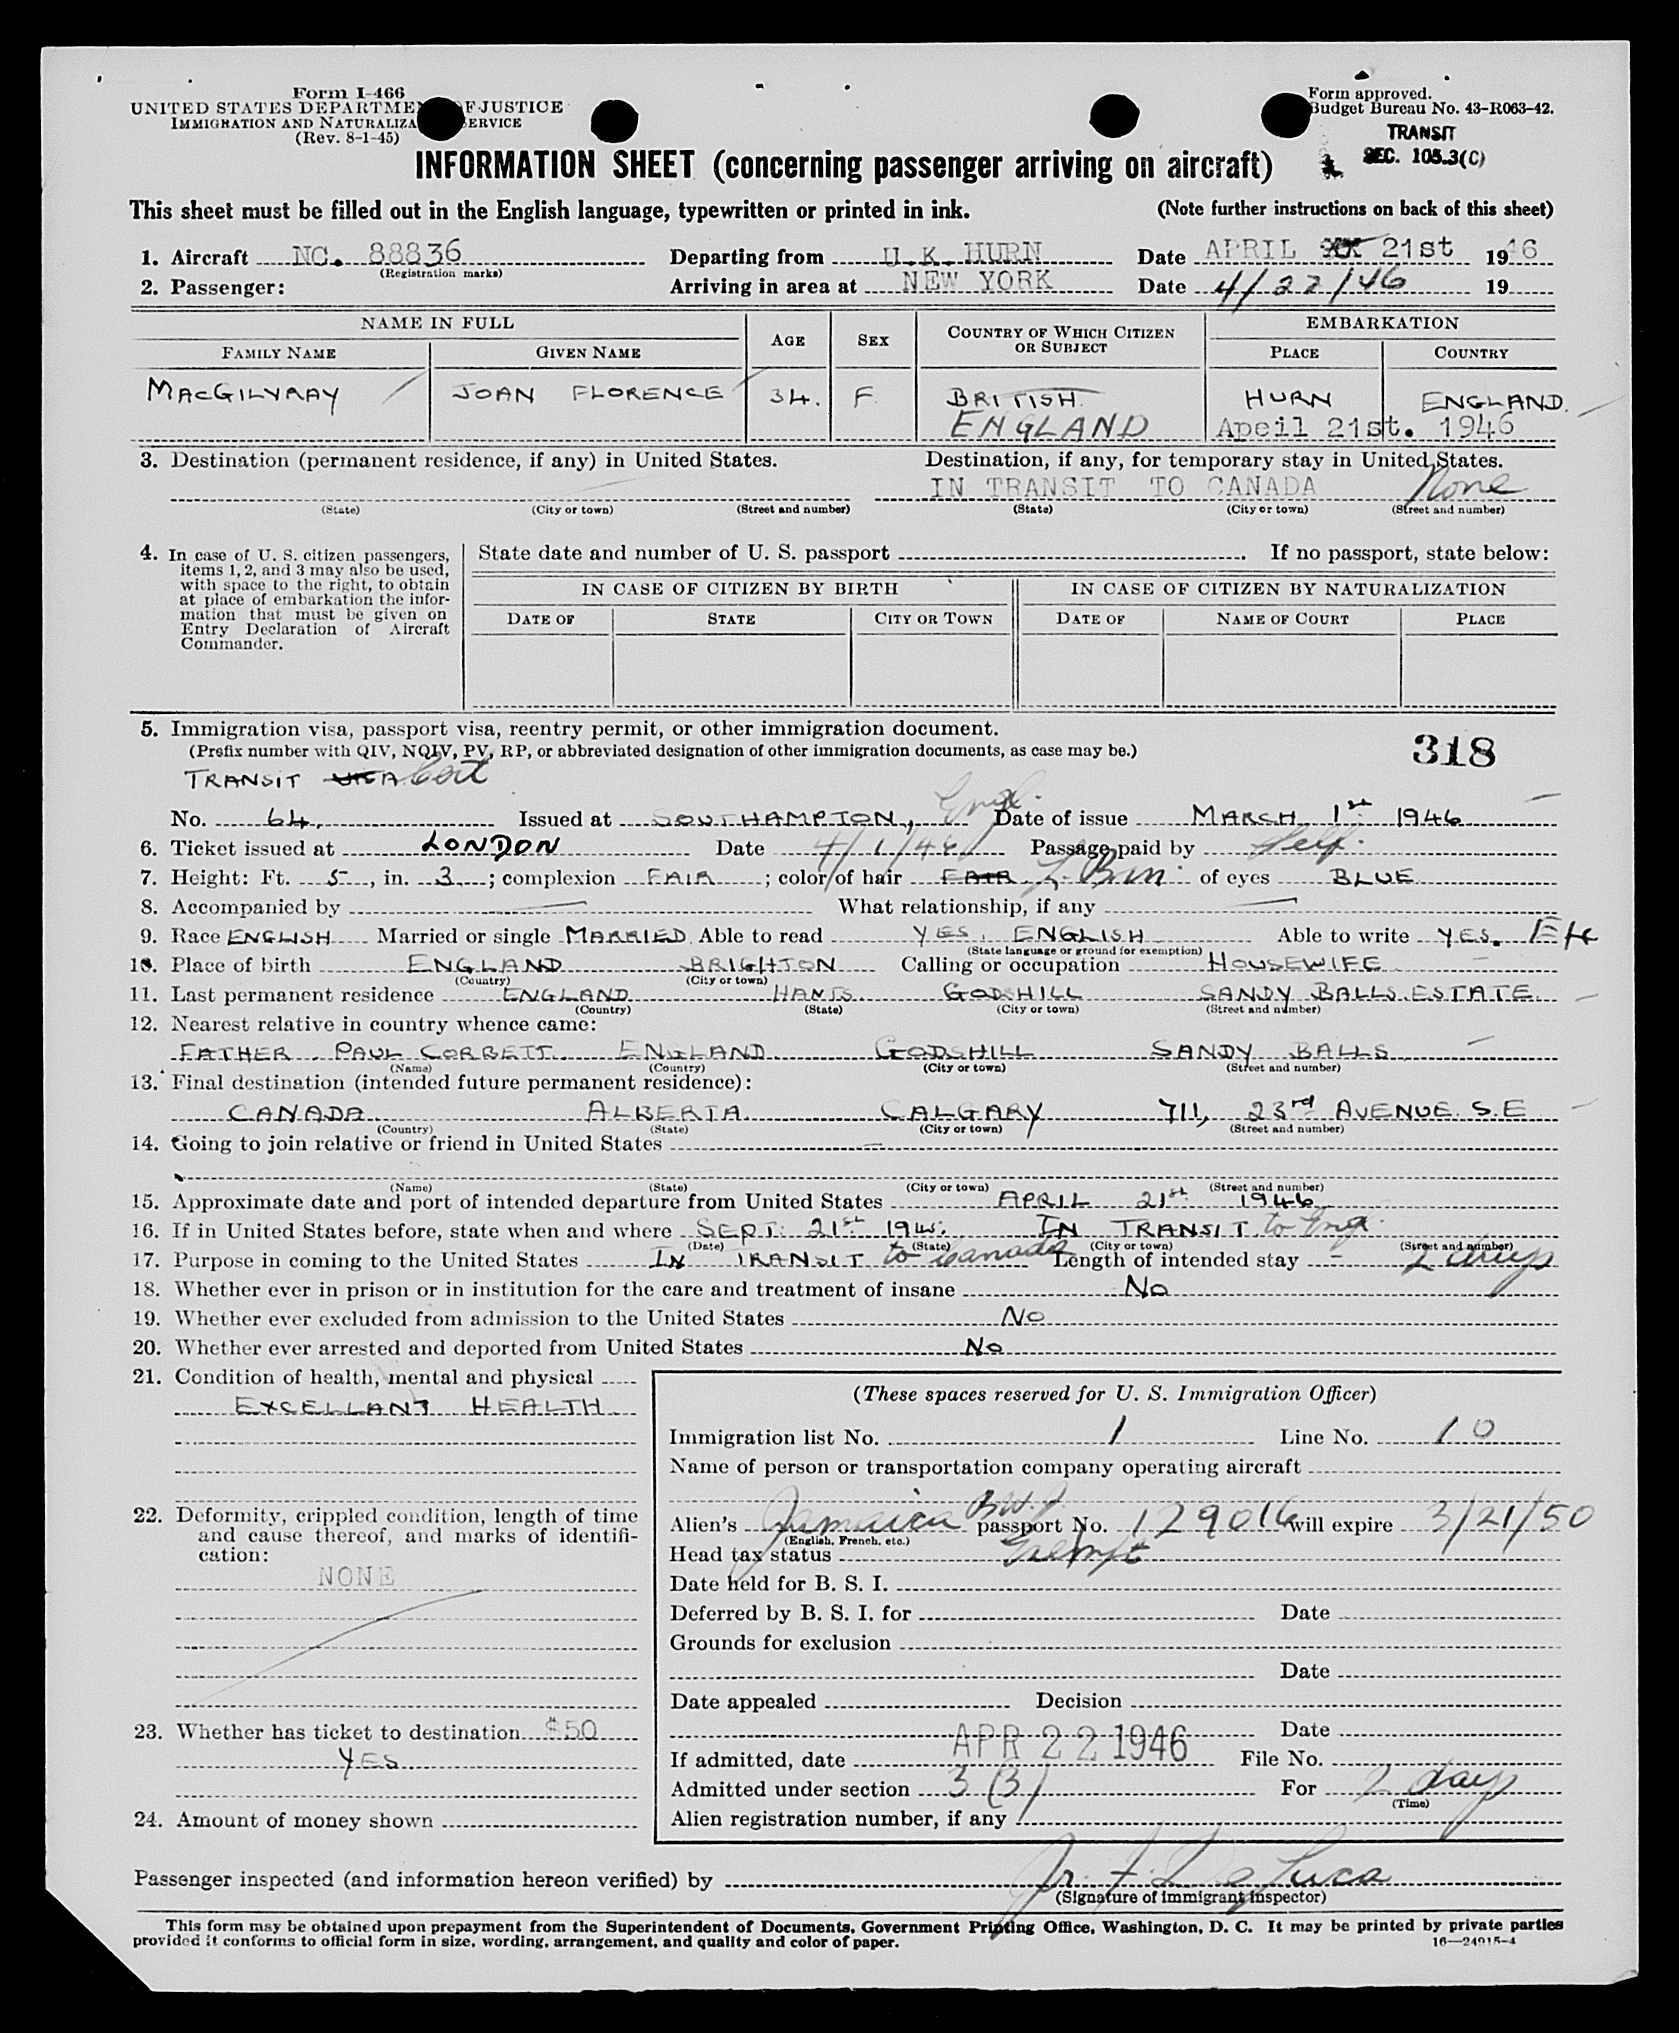 Form I-466
UNITED STATES DEPARTMENT OF JUSTICE
IMMIGRATION AND NATURALIZATION SERVICE
(Rev. 8-1-45)
Form approved.
Budget Bureau No. 43-R063-42.
TRANSIT
SEC. 105.3(C)
INFORMATION SHEET (concerning passenger arriving on aircraft)
This sheet must be filled out in the English language, typewritten or printed in ink. (Note further instructions on back of this sheet)
1. Aircraft NC. 88836 Departing from U.K. HURN Date APRIL 21st 1946
(Registration marks)
2. Passenger: Arriving in area at NEW YORK Date 4/22/46 19
NAME IN FULL AGE SEX COUNTRY OF WHICH CITIZEN OR SUBJECT EMBARKATION
FAMILY NAME GIVEN NAME PLACE COUNTRY
MACGILVRAY JOAN FLORENCE 34. F. BRITISH. HURN ENGLAND.
ENGLAND Apeil 21st. 1946
3. Destination (permanent residence, if any) in United States. Destination, if any, for temporary stay in United States.
IN TRANSIT TO CANADA None
(State) (City or town) (Street and number) (State) (City or town) (Street and number)
4. In case of U. S. citizen passengers, items 1, 2, and 3 may also be used, with space to the right, to obtain at place of embarkation the information that must be given on Entry Declaration of Aircraft Commander.
State date and number of U. S. passport . If no passport, state below:
IN CASE OF CITIZEN BY BIRTH IN CASE OF CITIZEN BY NATURALIZATION
DATE OF STATE CITY OR TOWN DATE OF NAME OF COURT PLACE
5. Immigration visa, passport visa, reentry permit, or other immigration document.
(Prefix number with QIV, NQIV, PV, RP, or abbreviated designation of other immigration documents, as case may be.)
318
TRANSIT VISA Cert
No. 64. Issued at SOUTHAMPTON, Engl. Date of issue MARCH 1st 1946
6. Ticket issued at LONDON Date 4/1/46 Passage paid by Self.
7. Height: Ft. 5, in. 3; complexion FAIR; color of hair FAIR L. Brn of eyes BLUE
8. Accompanied by What relationship, if any
9. Race ENGLISH Married or single MARRIED Able to read YES. ENGLISH Able to write YES.
(State language or ground for exemption)
10. Place of birth ENGLAND BRIGHTON Calling or occupation HOUSEWIFE
(Country) (City or town)
11. Last permanent residence ENGLAND HANTS. GODSHILL SANDY BALLS ESTATE
(Country) (State) (City or town) (Street and number)
12. Nearest relative in country whence came:
FATHER. PAUL CORBETT. ENGLAND GODSHILL SANDY BALLS
(Name) (Country) (City or town) (Street and number)
13. Final destination (intended future permanent residence):
CANADA ALBERTA CALGARY 711, 23rd AVENUE S.E
(Country) (State) (City or town) (Street and number)
14. Going to join relative or friend in United States
(Name) (State) (City or town) (Street and number)
15. Approximate date and port of intended departure from United States APRIL 21st 1946
16. If in United States before, state when and where SEPT. 21st IN TRANSIT to Engl.
(Date) (State) (City or town) (Street and number)
17. Purpose in coming to the United States IN TRANSIT to Canada Length of intended stay 2 days
18. Whether ever in prison or in institution for the care and treatment of insane No
19. Whether ever excluded from admission to the United States No
20. Whether ever arrested and deported from United States No
21. Condition of health, mental and physical
EXCELLANT HEALTH
22. Deformity, crippled condition, length of time and cause thereof, and marks of identification:
NONE
23. Whether has ticket to destination $50
YES.
24. Amount of money shown
(These spaces reserved for U. S. Immigration Officer)
Immigration list No. 1 Line No. 10
Name of person or transportation company operating aircraft
Alien's Jamaica B.W.I. passport No. 129016 will expire 3/21/50
(English, French, etc.)
Head tax status Exempt
Date held for B. S. I.
Deferred by B. S. I. for Date
Grounds for exclusion
Date
Date appealed Decision
Date
If admitted, date APR 22 1946 File No.
Admitted under section 3 (3) For 2 days
(Time)
Alien registration number, if any
Passenger inspected (and information hereon verified) by Jr. F. De Luca
(Signature of immigrant inspector)
This form may be obtained upon prepayment from the Superintendent of Documents, Government Printing Office, Washington, D. C. It may be printed by private parties
provided it conforms to official form in size, wording, arrangement, and quality and color of paper.
16—24915-4